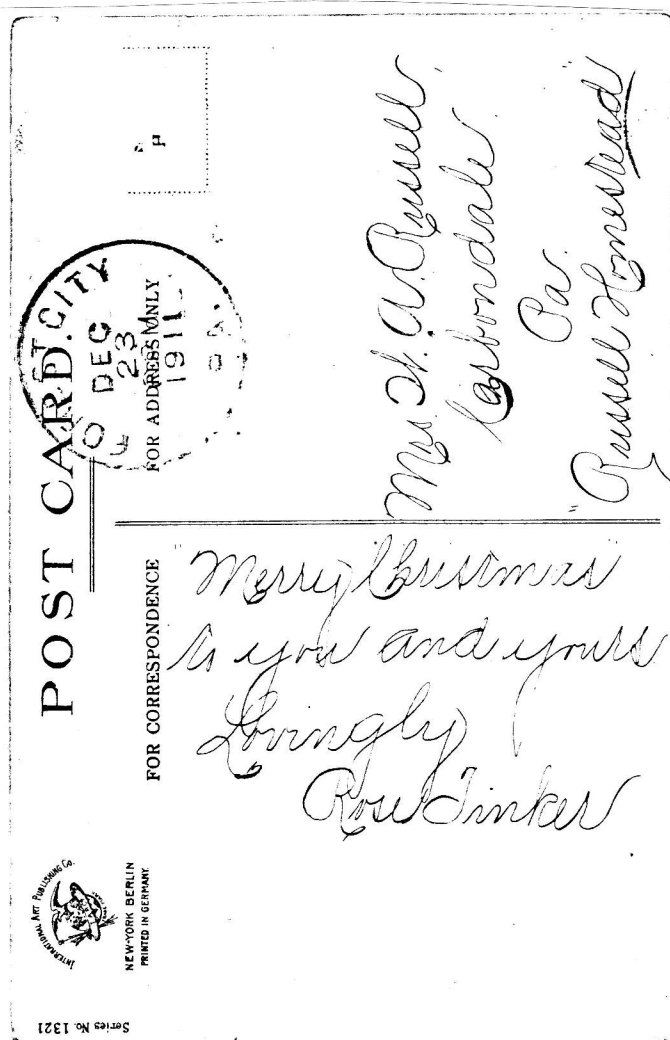 POST CARD.
FOR CORRESPONDENCE
FOR ADDRESS ONLY
CITY
DEC
23
1911
PA.
Merry Christmas
to you and yours
Lovingly
Rose Tinker
Mrs. W. A. Russell
Carbondale
Pa.
"Russell Homestead
INTERNATIONAL ART PUBLISHING CO.
NEW-YORK BERLIN
PRINTED IN GERMANY
Series No. 1321